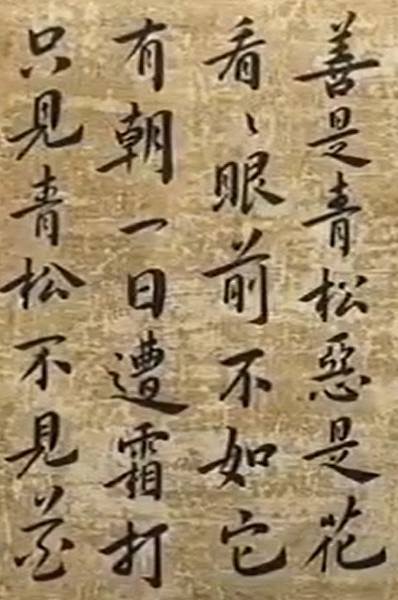 善是青松惡是花
看〻眼前不如它
有朝一日遭霜打
只見青松不見花